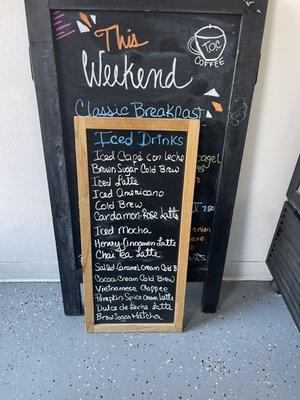 This
TOC
COFFEE
Weekend
Classic Breakfast
Iced Drinks
Iced Café con leche
Brown Sugar Cold Brew
Iced Latte
Iced Americano
Cold Brew
Cardamon-Rose Latte
Iced Mocha
Honey-Cinnamon Latte
Chai Tea Latte
Salted Caramel Cream Cold B
Cocoa Cream Cold Brew
Vietnamese Coffee
Pumpkin Spice Cream Latte
Dulce de Leche Latte
Brown Sugar Matcha